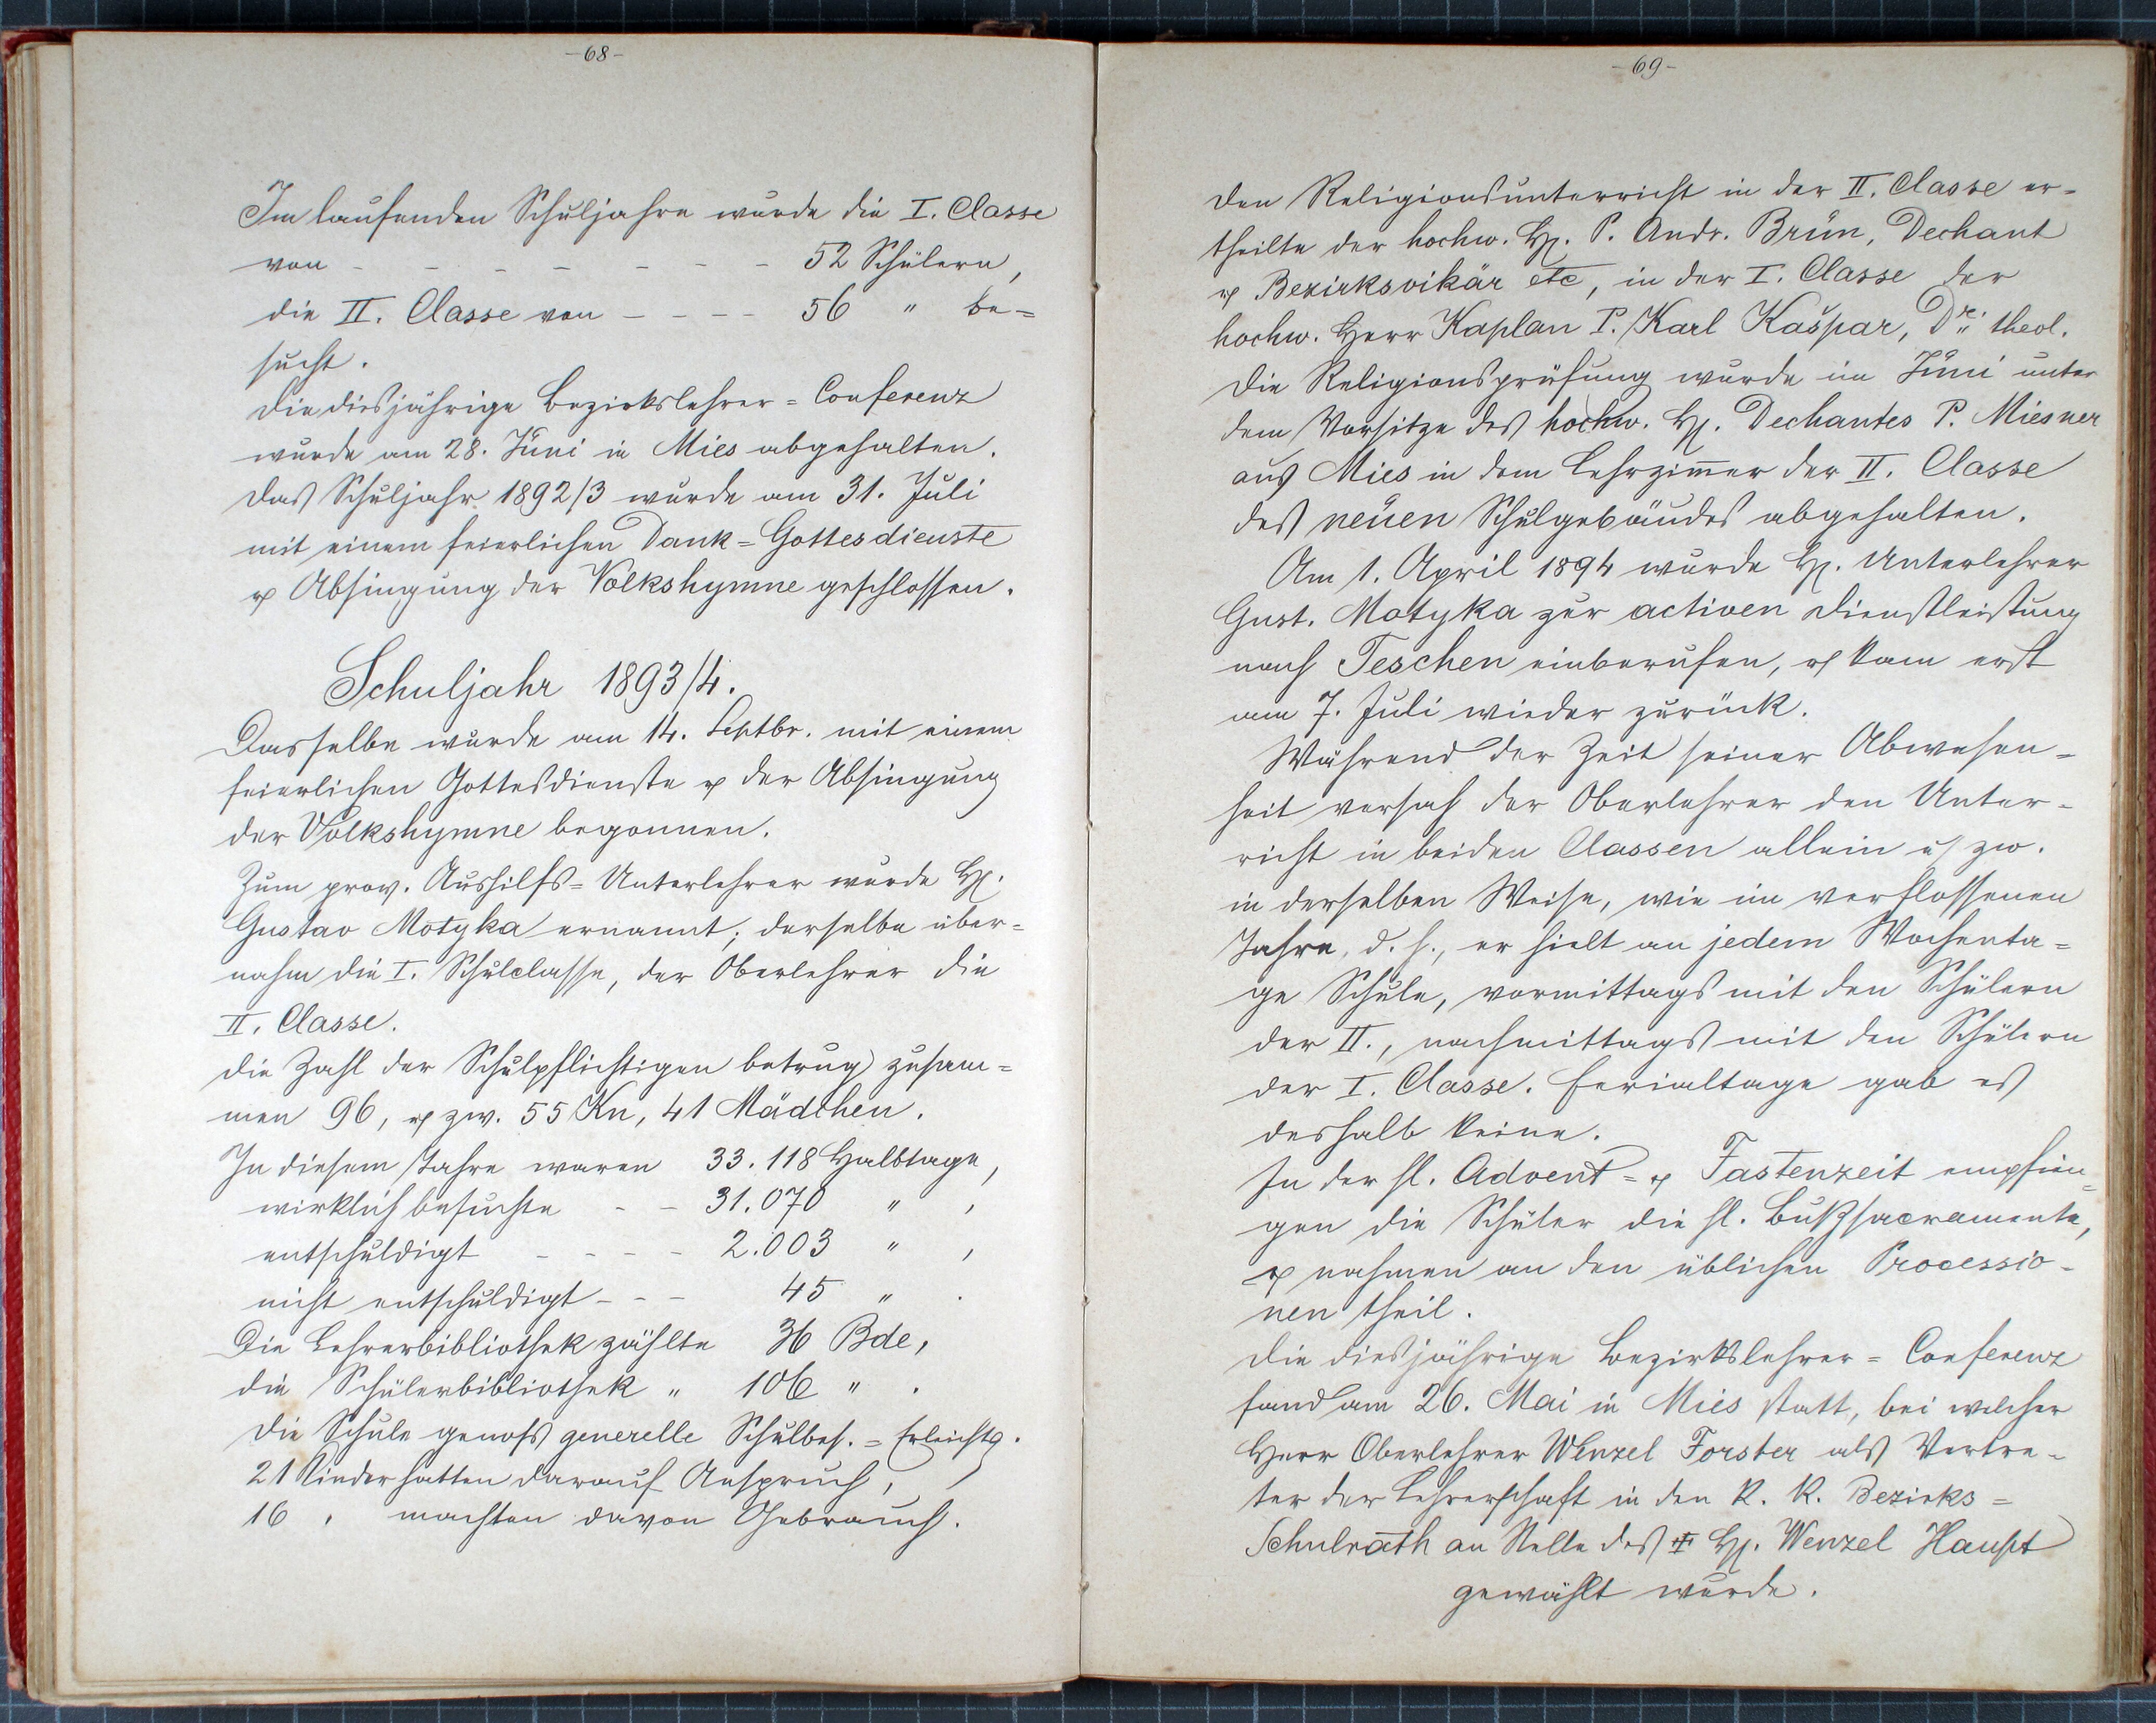 -68-
Im laufenden Schuljahre wurde die I. Classe
von - - - - - - 52 Schülern,
die II. Classe von - - - - 56 " be=
sucht.
Die diesjährige Bezirkslehrer=Conferenz
wurde am 28. Juni in Mies abgehalten.
Das Schuljahr 1892/3 wurde am 31. Juli
mit einem feierlichen Dank=Gottesdienste
u. Absingung der Volkshymne geschlossen.
Schuljahr 1893/4.
Dasselbe wurde am 14. Septbr. mit einem
feierlichen Gottesdienste u. der Absingung
der Volkshymne begonnen.
Zum prov. Aushilfs=Unterlehrer wurde H.
Gustav Motyka ernannt; derselbe über=
nahm die I. Schulclasse, der Oberlehrer die
II. Classe.
Die Zahl der Schulpflichtigen betrug zusam=
men 96, u. zw. 55 Kn, 41 Mädchen.
In diesem Jahre waren 33.118 Halbtage,
wirklich besuchte - - 31.070 " ,
entschuldigt - - - - 2.003 " ,
nicht entschuldigt - - - 45 " .
Die Lehrerbibliothek zählte 36 Bde,
die Schülerbibliothek " 106 " .
Die Schule genoß generelle Schulbes.=Erleichtg.
21 Kinder hatten darauf Anspruch,
16 " machten davon Gebrauch.
-69-
Den Religionsunterricht in der II. Classe er=
theilte der hochw. H. P. Andr. Brün, Dechant
u. Bezirksvikär etc, in der I. Classe der
hochw. Herr Kaplan P. Karl Kašpar, Dr. theol.
Die Religionsprüfung wurde im Juni unter
dem Vorsitze des hochw. H. Dechantes P. Miesner
aus Mies in dem Lehrzim̅er der II. Classe
des neuen Schulgebäudes abgehalten.
Am 1. April 1894 wurde H. Unterlehrer
Gust. Motyka zur activen Dienstleistung
nach Teschen einberufen, u. kam erst
am 7. Juli wieder zurück.
Während der Zeit seiner Abwesen=
heit versah der Oberlehrer den Unter=
richt in beiden Classen allein u. zw.
in derselben Weise, wie im verflossenen
Jahre, d. h., er hielt an jedem Wochenta=
ge Schule, vormittags mit den Schülern
der II., nachmittags mit den Schülern
der I. Classe. Ferialtage gab es
deshalb keine.
In der hl. Advent= u. Fastenzeit empfin=
gen die Schüler die hl. Bußsacramente,
u. nahmen an den üblichen Processio=
nen theil.
Die diesjährige Bezirkslehrer=Conferenz
fand am 26. Mai in Mies statt, bei welcher
Herr Oberlehrer Wenzel Forster als Vertre=
ter der Lehrerschaft in den k. k. Bezirks=
Schulrath an Stelle des † H. Wenzel Haupt
gewählt wurde.